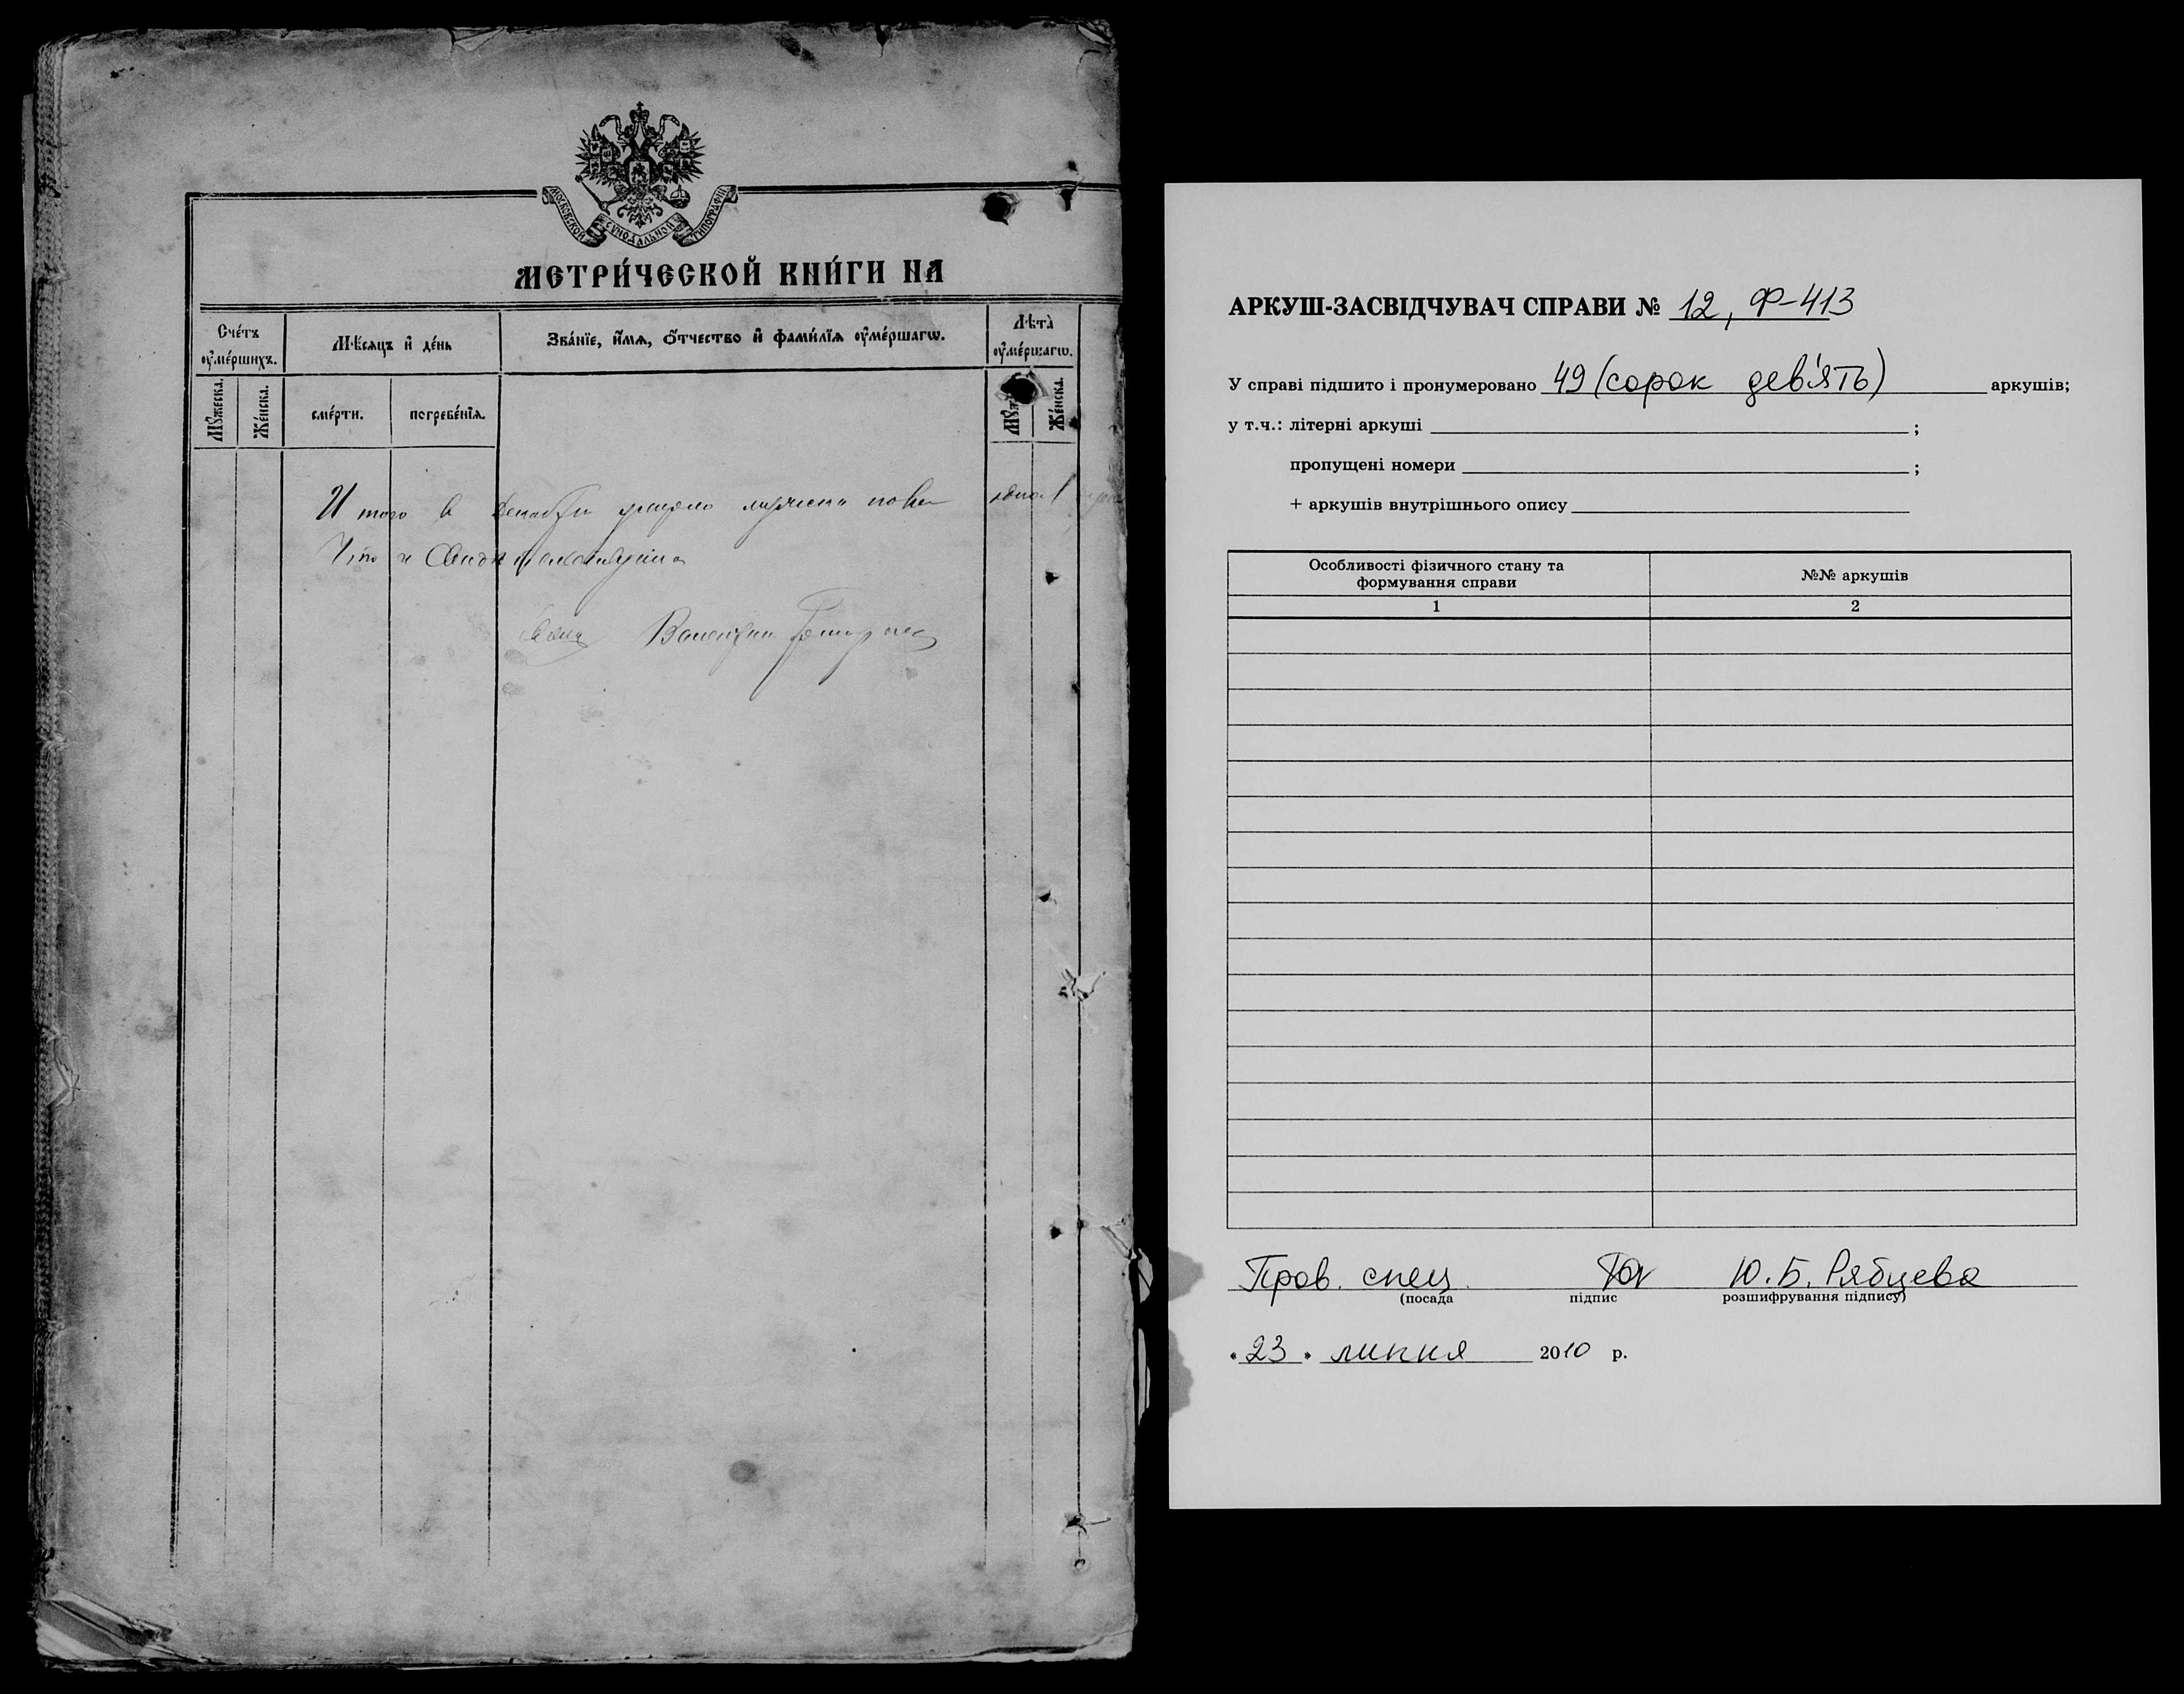 МОСКОВСКОЙ СѴНОДАЛЬНОЙ ТИПОГРАФІИ
МЕТРИ́ЧЕСКОЙ КНИ́ГИ НА
Сче́тъ ᲂу҆ме́ршихъ.
Мѣ́сяцъ и҆ де́нь
Зва́нїе, и҆́мѧ, ѻ҆́тчество и҆ фами́лїѧ ᲂу҆ме́ршагѡ.
Лѣта̀ ᲂу҆ме́ршагѡ.
Мꙋ́жеска.
Же́нска.
сме́рти.
погребе́нїѧ.
Же́нска.
И того в Декабри умерло мужеска пола один
Валентин
АРКУШ-ЗАСВІДЧУВАЧ СПРАВИ № 12, Ф-413
У справі підшито і пронумеровано 49 (сорок дев'ять) аркушів;
у т.ч.: літерні аркуші ;
пропущені номери ;
+ аркушів внутрішнього опису
Особливості фізичного стану та формування справи
№№ аркушів
1
2
Пров. спец. Ю.Б. Рябцева
(посада підпис розшифрування підпису)
« 23 » липня 2010 р.